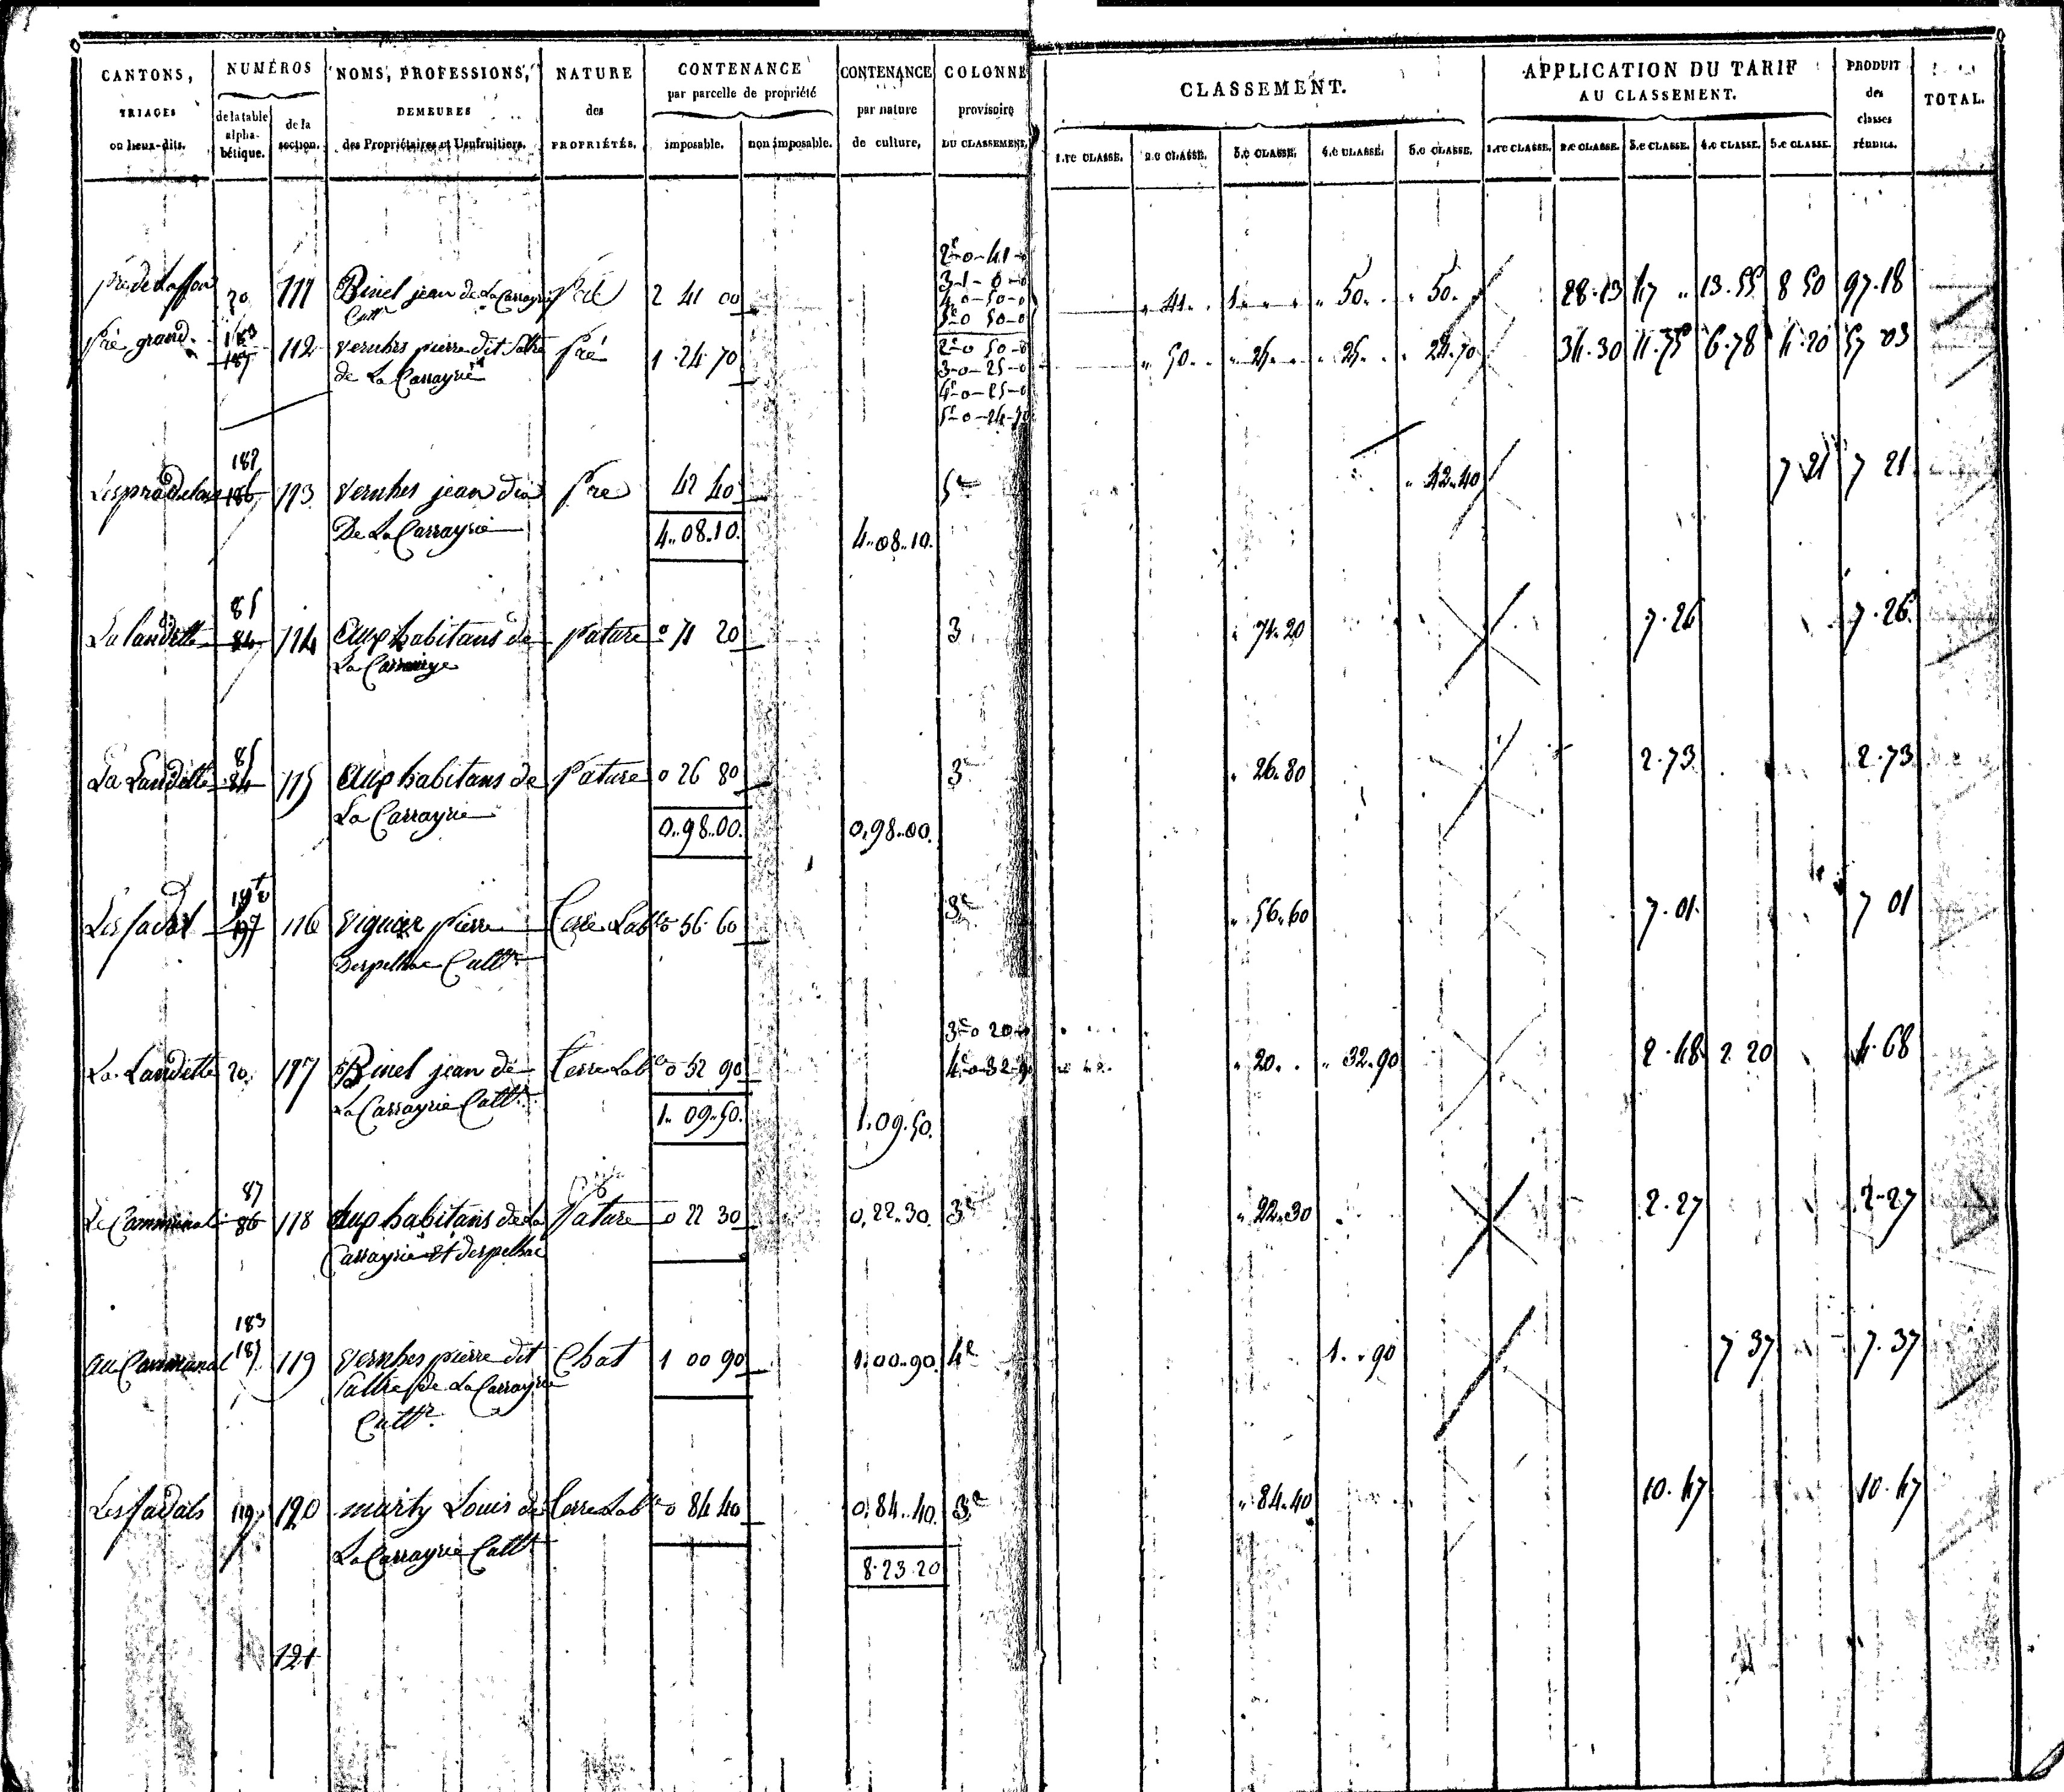 CANTONS, TRIAGES ou lieux-dits.
NUMÉROS
de la table alpha-bétique.
de la section.
NOMS, PROFESSIONS, DEMEURES des Propriétaires et Usufruitiers.
NATURE des PROPRIÉTÉS.
CONTENANCE par parcelle de propriété
imposable.
non imposable.
CONTENANCE par nature de culture,
COLONNE provisoire DU CLASSEMENT,
CLASSEMENT.
1.re CLASSE. 2.e CLASSE. 3.e CLASSE. 4.e CLASSE. 5.e CLASSE.
APPLICATION DU TARIF AU CLASSEMENT.
1.re CLASSE. 2.e CLASSE. 3.e CLASSE. 4.e CLASSE. 5.e CLASSE.
PRODUIT des classes réunies.
TOTAL.
2e 0-41-0
3-1-0-0
4-0-50-0
5e-0 50-0
20 111 Binel jean de La Carrayrie pré 2 41 00 " 41. . 1 " 50. . " 50. 28.13 47 " 13.55 8 50 97.18
Cultr
pré grand 112 vernhes pierre dit pré 1.24.70 " 50. . " 25. " 25. " 24.70 34.30 11.75 6.78 4.20 57 03
de La Carrayrie
2e-0 50-0
3-0-25-0
4e-0-25-0
5e-0-24-70
187
186 113 vernhes jean pré 42 40 5e " 42.40 7 21 7 21
De La Carrayrie 4..08.10. 4..08..10.
85
La landette 84 114 aux habitans de pature 0 71 20 3 " 71.20 7.26 7.26
La Carrayrie
85
La Landette 84 115 aux habitans de Pature 0 26 80 3 " 26.80 2.73 2.73
La Carrayrie
0..98..00. 0,98..00.
116 viguier pierre Terre Lable 0 56 60 3e " 56.60 7.01 7 01
Despelhac Cultr
3e 0 20
La Landette 20 117 Binel jean de Terre Labe 0 52 90 4e 0-32-90 " 20. . " 32.90 2.48 2 20 4.68
La Carrayrie Cultr
1.. 09..50. 1.09.50.
87
Le Communal 86 118 aux habitans de La Pature 0 22 30 0,22..30. 3e " 22.30 2.27 2.27
Carrayrie et despelhac
183
au Communal 119 vernhes pierre dit Chat 1 00 90 1.00..90. 4e 1. " 90 7 37 7.37
de La Carrayrie
Cultr
Les fadals 119 120 marty Louis de Terre Labe 0 84 40 0.84..40. 3e " 84.40 10.47 10.47
La Carrayrie Cultr
8.23.20
121